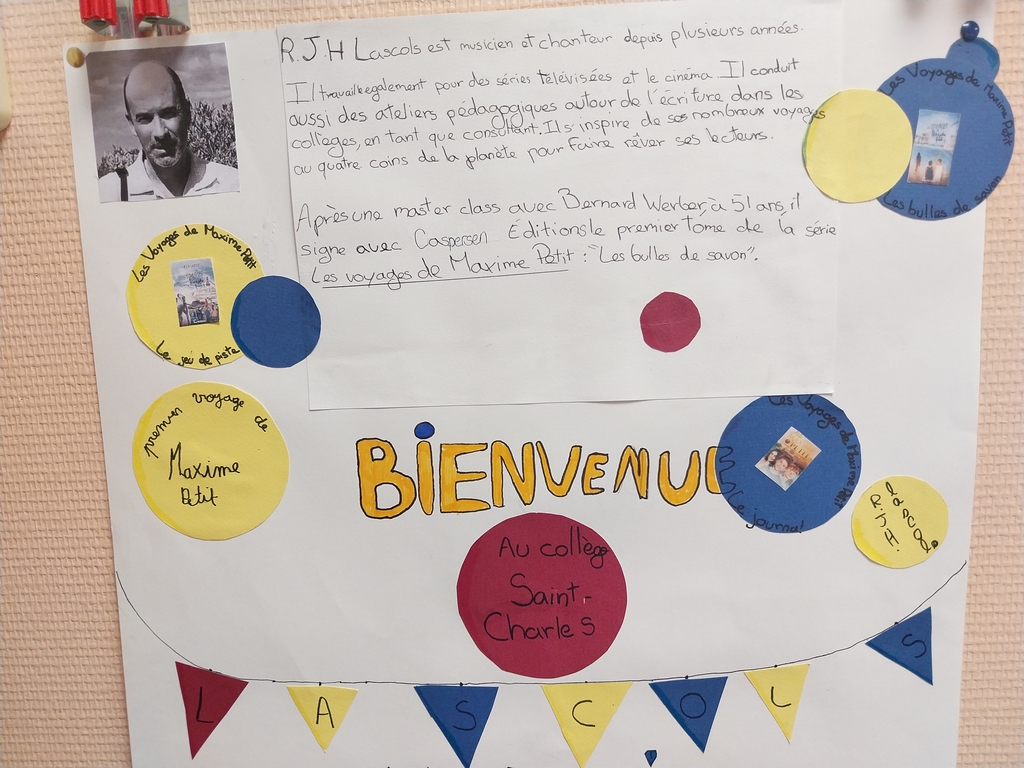 R.J.H Lascols est musicien et chanteur depuis plusieurs années.
Il travaille egalement pour des séries télévisées et le cinéma. Il conduit
aussi des ateliers pédagogiques autour de l'écriture dans les
collèges, en tant que consultant. Il s'inspire de ses nombreux voyages
au quatre coins de la planète pour faire rêver ses lecteurs.
Après une master class avec Bernard Werber, à 51 ans, il
signe avec Caspersen Editions le premier tome de la série
Les voyages de Maxime Petit : "Les bulles de savon".
Les Voyages de Maxime Petit
Les bulles de savon
Les Voyages de Maxime Petit
Le jeu de piste
premier voyage de
Maxime
Petit
BIENVENUE
Les Voyages de Maxime Petit
Le journal
R.J.H.
Lascols
Au collège
Saint-
Charles
L A S C O L S